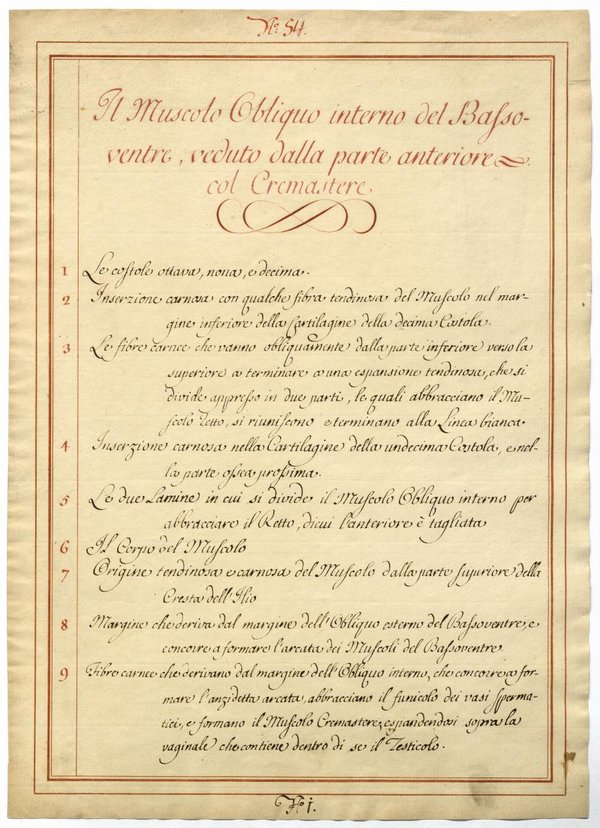 No. 54.
Il Muscolo Obliquo interno del Basso-
ventre, veduto dalla parte anteriore
col Cremastere
1 Le costole ottava, nona, e decima.
2 Inserzione carnosa con qualche fibra tendinosa del Muscolo nel mar-
gine inferiore della Cartilagine della decima Costola.
3 Le fibre carnee che vanno obliquamente dalla parte inferiore verso la
superiore a terminare a una espansione tendinosa, che si
divide appresso in due parti, le quali abbracciano il Mu-
scolo retto, si riuniscono e terminano alla Linea bianca
4 Inserzione carnosa nella Cartilagine della undecima Costola, e nel-
la parte ossea prossima.
5 Le due Lamine in cui si divide il Muscolo Obliquo interno per
abbracciare il Retto, di cui l'anteriore è tagliata
6 Il Corpo del Muscolo
7 Origine tendinosa e carnosa del Muscolo dalla parte superiore della
Cresta dell'Ilio
8 Margine che deriva dal margine dell'Obliquo esterno del Bassoventre, e
concore a formare l'arcata dei Muscoli del Bassoventre.
9 Fibre carnee che derivano dal margine dell'Obliquo interno, che concore a for-
mare l'anzidetta arcata, abbracciano il funicolo dei vasi sperma-
tici, e formano il Muscolo Cremastere, espandendosi sopra la
vaginale che contiene dentro di se il Testicolo.
No. 1.